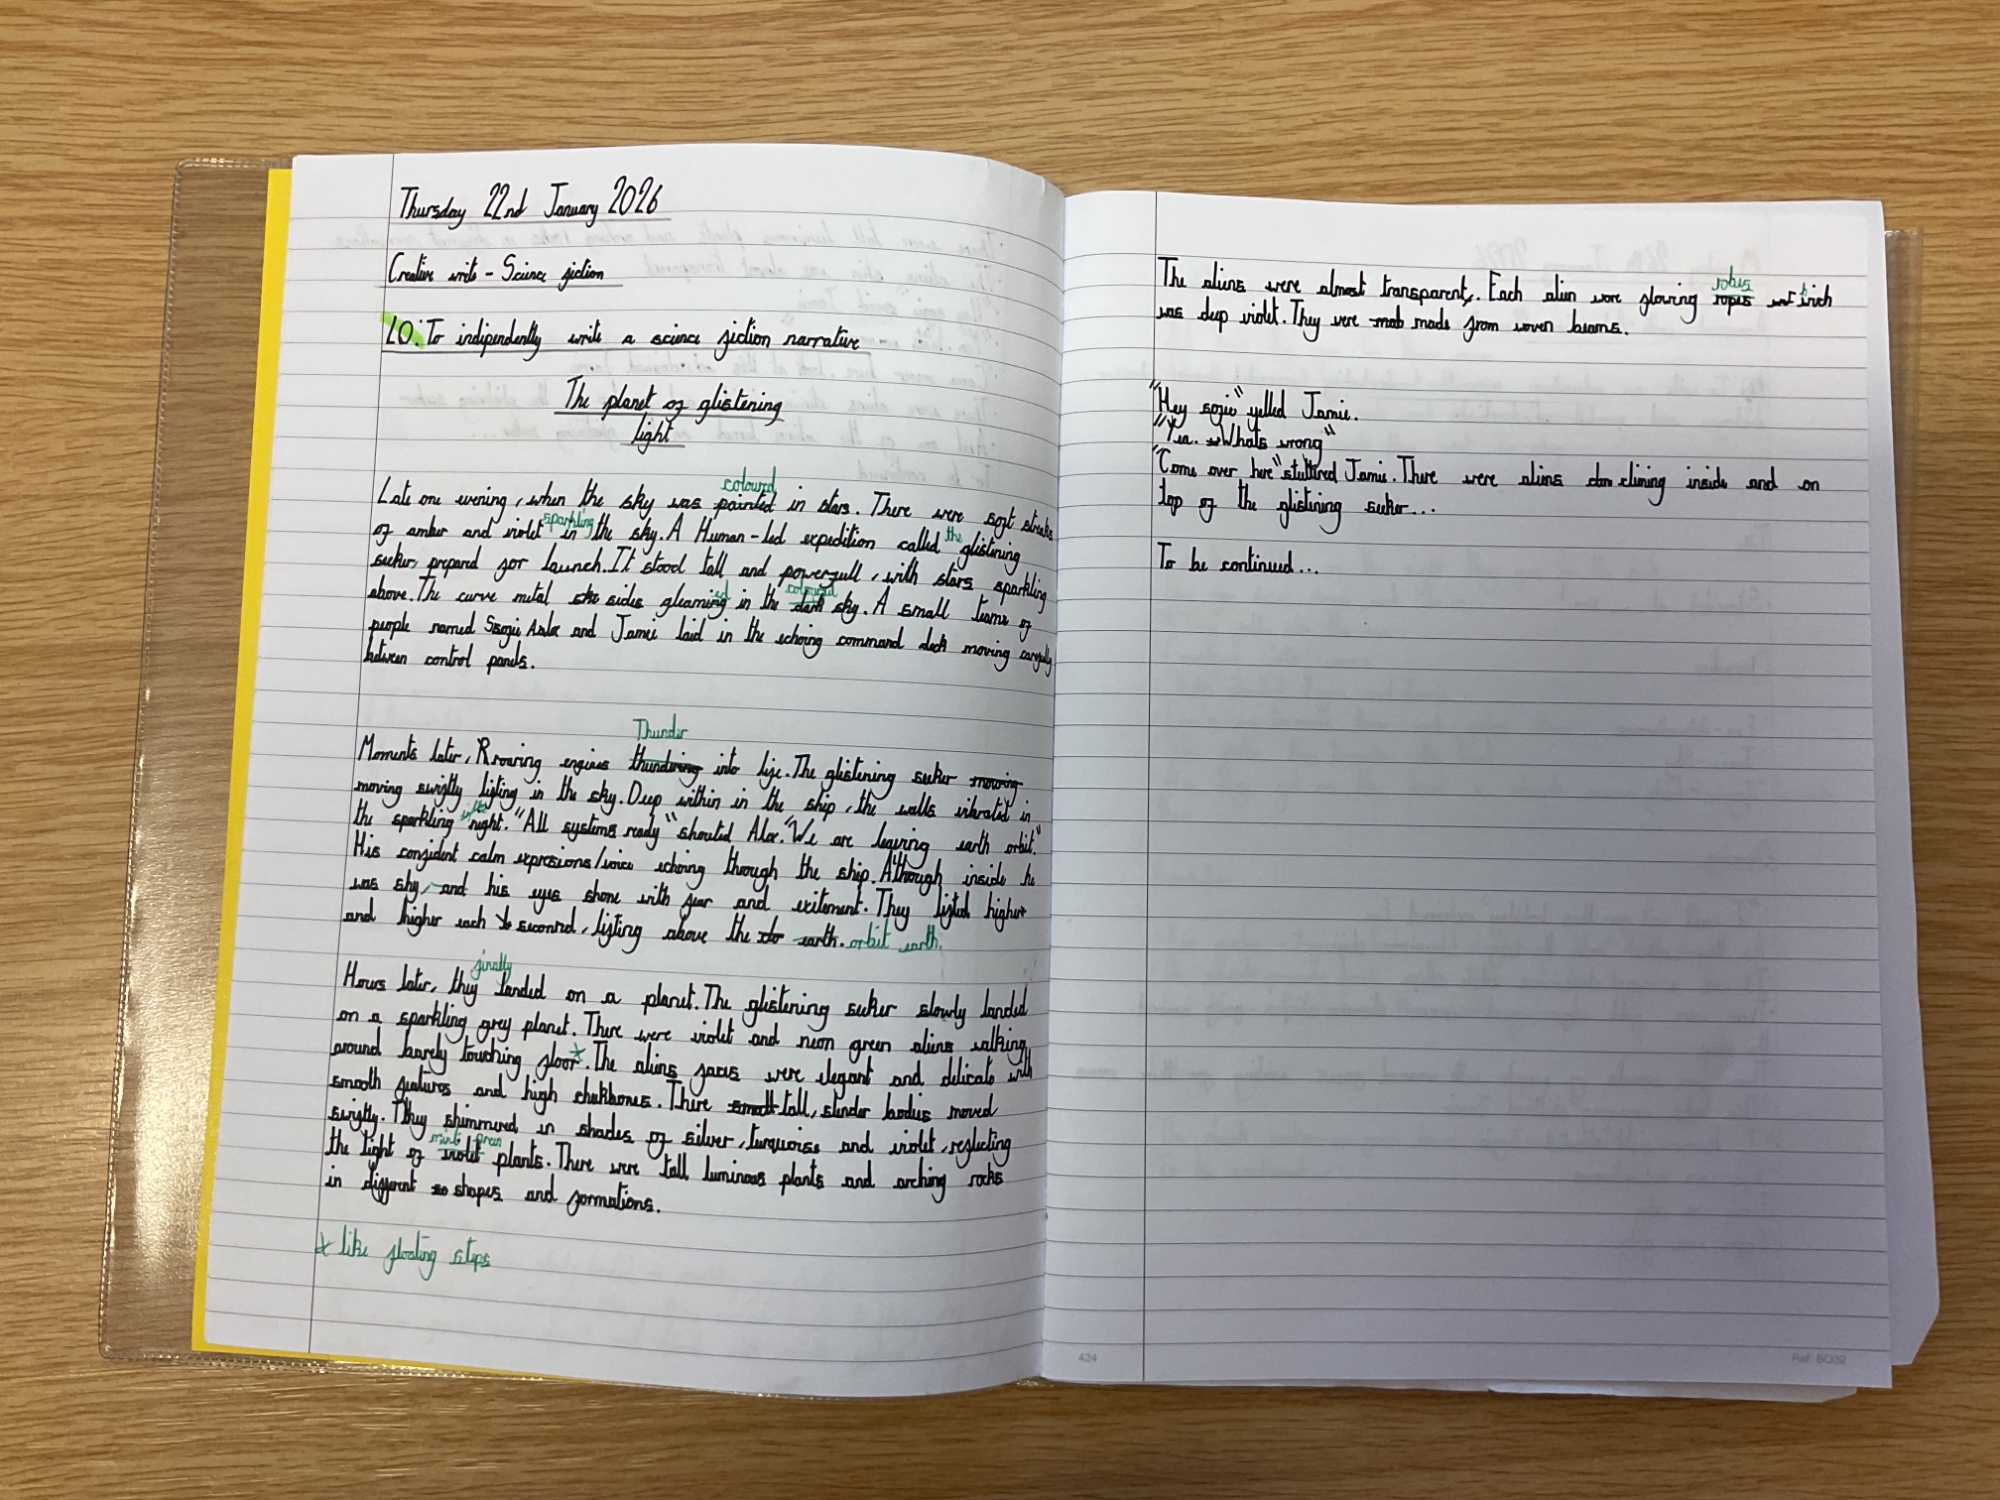 Thursday 22nd January 2026
Creative write - Science fiction
LO: To indipendently write a science fiction narrative
The planet of glistening
light
coloured
Late one evening, when the sky was painted in stars. There were soft streaks
sparkling the
of amber and violet in the sky. A Human-led expedition called glistening
seeker, prepared for launch. It stood tall and powerfull, with stars sparkling
ed coloured
above. The curve metal sides gleaming in the dark sky. A small teams of
people named Sofie Aslex and Jamie laid in the echoing command deck moving carefully
between control panels.
Thunder
Moments later, Rroaring engines thundering into life. The glistening seeker moving
moving swiftly lifting in the sky. Deep within in the ship, the walls vibrated in
the sparkling night. "All systems ready" shouted Alex. "We are leaving earth orbit."
His confident calm expresions/voice echoing through the ship. Although inside he
was shy, and his eyes shone with fear and exitement. They lifted higher
and higher each seconrd, lifting above the earth. orbit earth.
finally
Hours later, they landed on a planet. The glistening seeker slowly landed
on a sparkling grey planet. There were violet and neon green aliens walking
around barely touching floor*. The aliens faces were elegant and delicate with
smooth features and high cheekbones. There small tall, slender bodies moved
swiftly. They shimmered in shades of silver, turquoise and violet, reflecting
mint green
the light of violet plants. There were tall luminous plants and arching rocks
in different so shapes and formations.
* like floating steps
robes
The aliens were almost transparent,. Each alien wore glowing ropes which
was deep violet. They were mab made from woven beams.
"Hey sofie" yelled Jamie.
"Yea. Whats wrong"
"Come over here" stuttered Jamie. There were aliens climing inside and on
top of the glistining seeker...
To be continued...
424
Ref: BQ32